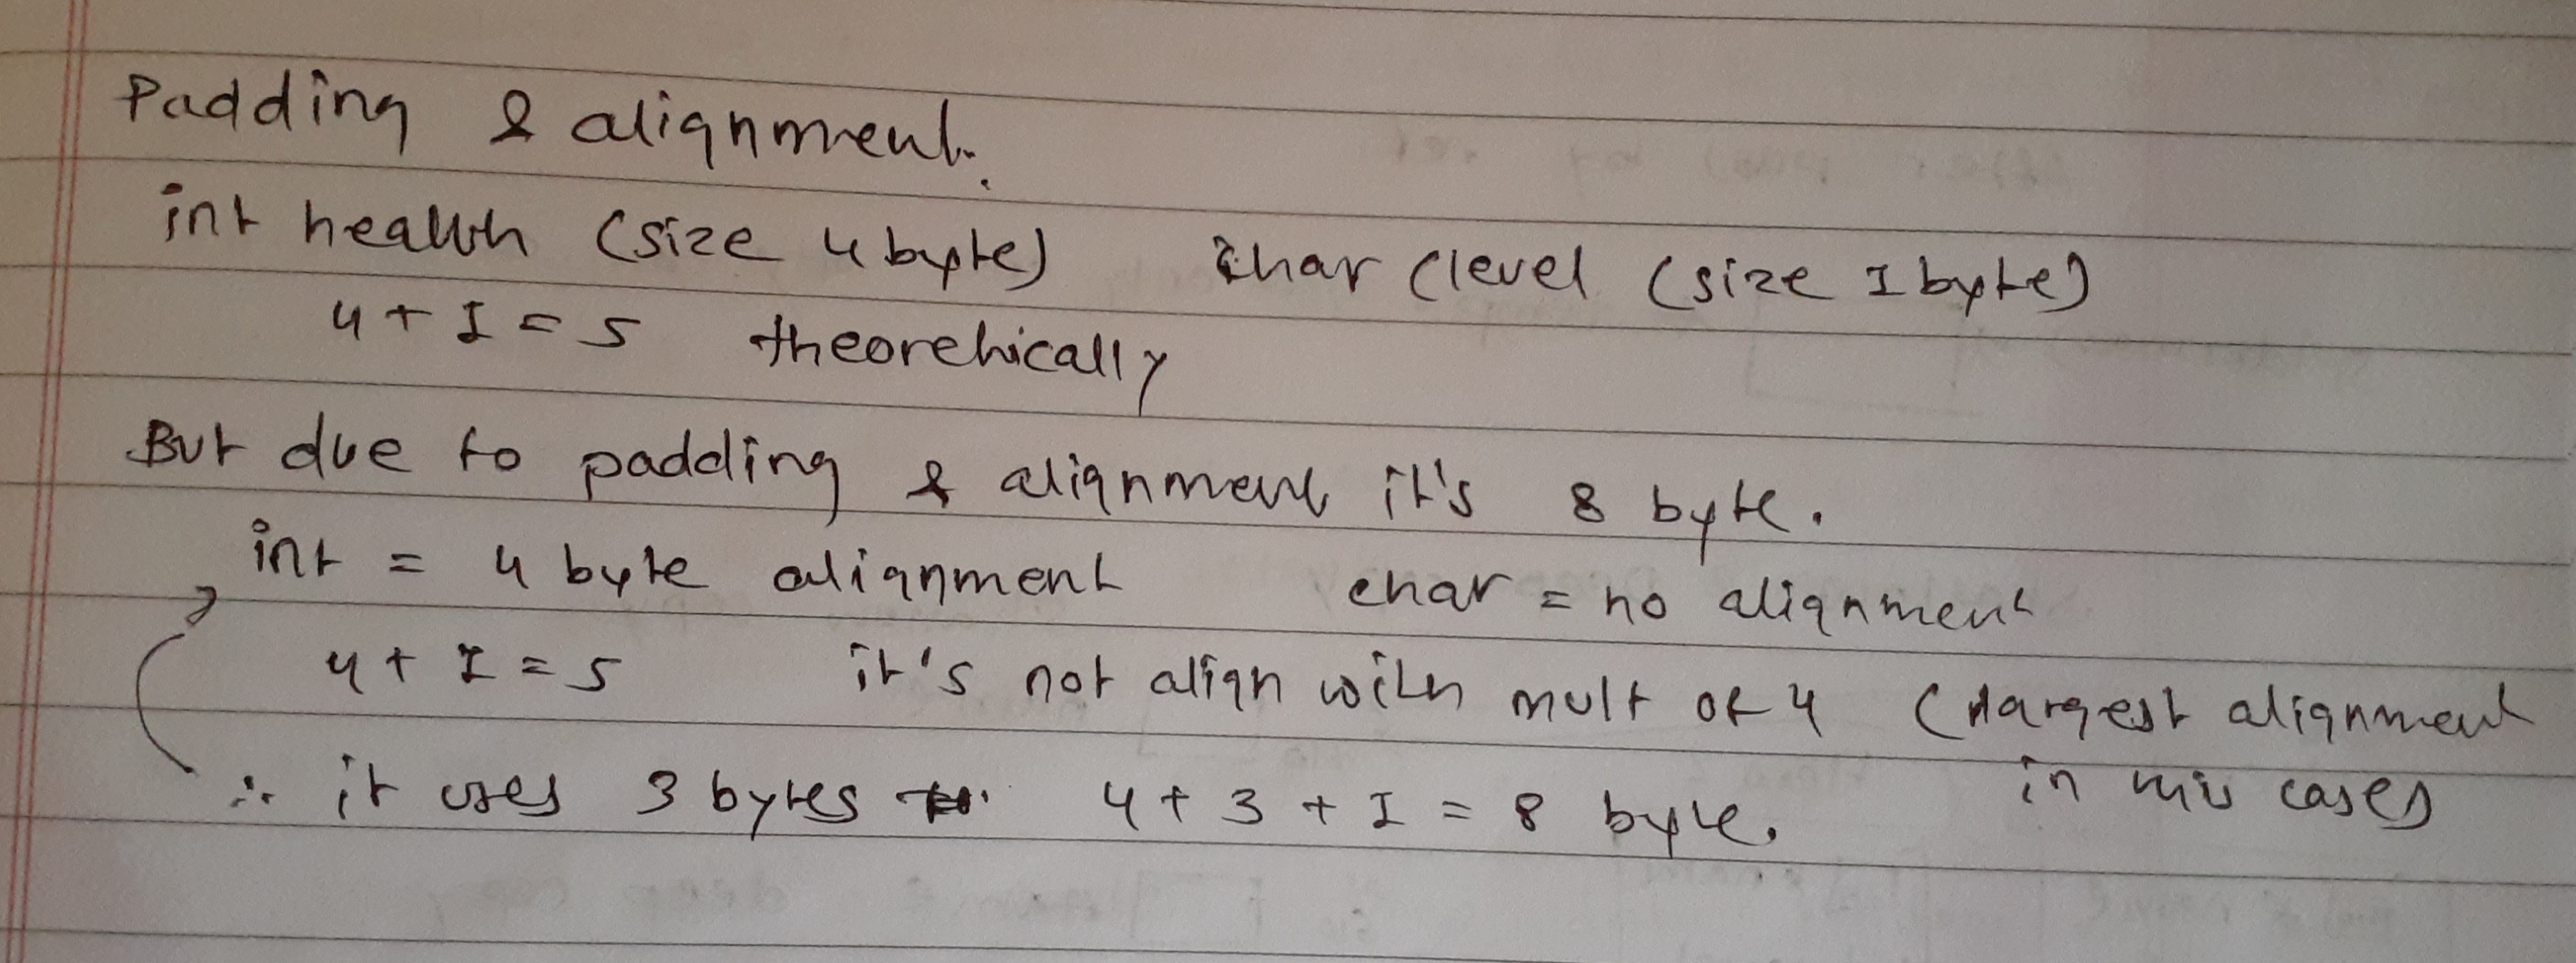 Padding & alignment.
int health (size 4 byte) char (level (size 1 byte)
4 + 1 = 5 theoretically
But due to padding & alignment it's 8 byte.
int = 4 byte alignment char = no alignment
4 + 1 = 5 it's not align with mult of 4 (largest alignment
in this cases)
∴ it uses 3 bytes 4 + 3 + 1 = 8 byte.